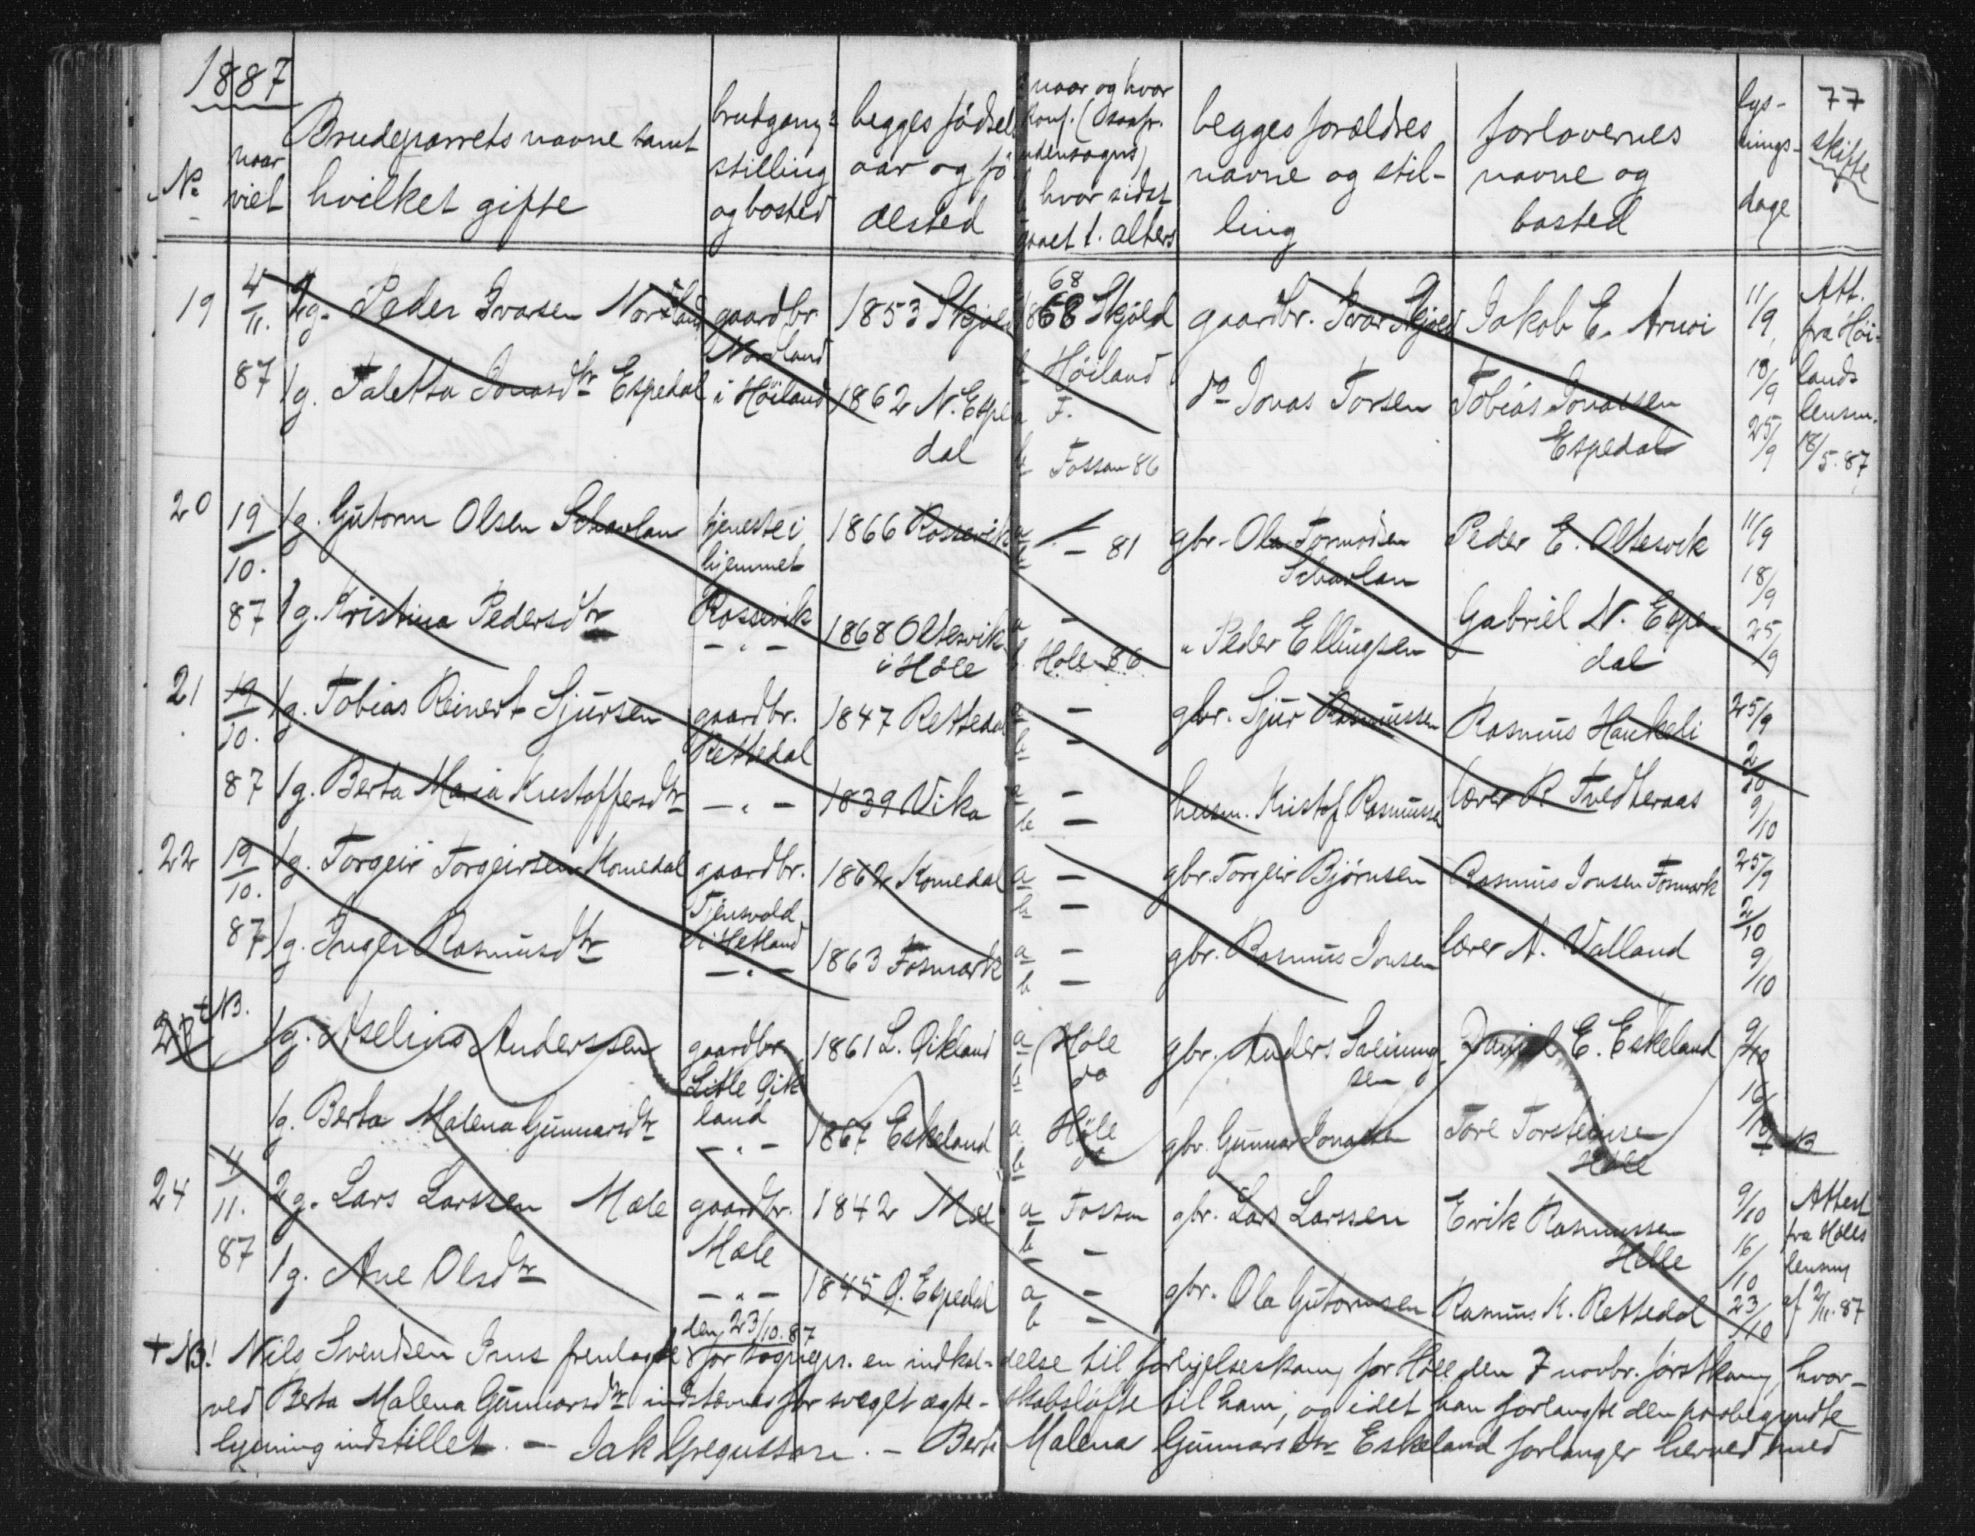 1887
77
No
naar viet
Brudeparrets navne samt hvilket gifte
brudgoms stilling og bosted
begges fødsel aar og fø desteд
naar og hvor konf. udensogns, b hvor sidst gaaet t. alters
begges forældres navne og stilling
forlovernes navne og bosted
lysnings dage
skifte
19 4/11. 87 2g. Peder Ivarsen Norland gaardbr. Norland i Höiland 1853 Skjöld 1868 68 Skjöld b Höiland gaardbr. Ivar Skjöld Jakob E. 11/9 18/9 25/9 Att. fra Höilands lensm. 18/5. 87
1g. Taletta Jonasdtr Espedal 1862 N. Espedal a F. b Fossan 86 do Jonas Torsen Tobias Jonassen Espedal
20 19/10. 87 1g. Gutorm Olsen Scharlan tjeneste i hjemmet Rossevik 1866 Rossevik a - b - 81 gbr. Ola Tormodsen Scharlan Peder E. Oltesvik 11/9 18/9 25/9
1g. Kristina Pedersdtr - " - 1868 Oltesvik i Høle a - b. Høle 86 " Peder Ellingsen Gabriel N. Espedal
21 19/10. 87 1g. Tobias Reinert Sjursen gaardbr. Rettedal 1847 Rettedal a - b - gbr. Sjur Rasmussen Rasmus Haukali 25/9 2/10 9/10
1g. Berta Maria Kristoffersdtr - " - 1839 Vika a - b - husm. Kristof. Rasmussen lærer R. Tvedteraas
22 19/10. 87 1g. Torgeir Torgeirsen Komedal gaardbr. Tjensvold i Hetland 1862 Komedal a - b - gbr. Torgeir Bjørnsen Rasmus Jonsen Fosmark 25/9 2/10 9/10
1g. Inger Rasmusdtr - " - 1863 Fosmark a - b - gbr. Rasmus Jonsen lærer N. Valland
23 + NB. 1g. Aselius Anderssen gaardbr. Litle Eikland 1861 L. Eikland a Høle b do gbr. Anders Sveinungsen Daniel E. Eskeland 9/10 16/10 + NB
1g. Berta Malena Gunnarsdtr - " - 1867 Eskeland a Høle b do gbr. Gunnar Jonassen Tore Torsteinsen Høle
24 4/11. 87 2g. Lars Larssen Mæle gaardbr. Mæle 1842 Mæle a Fossan b - gbr. Lars Larssen Erik Rasmussen Helle 9/10 16/10 23/10 Attest fra Høles lensm af 2/11. 87
1g. Ane Olsdtr - " - 1845 Ø. Espedal a - b - gbr. Ola Gutormsen Rasmus K. Rettedal
den 23/10. 87
+ NB! Nils Svendsen Ims fremlagde for sognepr. en indkaldelse til forligelseskom. for Høle den 7 novbr. førstkom., hvor-
ved Berta Malena Gunnarsdtr indstævnes for sveget ægteskabsløfte til ham, og idet han forlangte den paabegyndte
lysning indstillet. - Jak Gregussen. - Berta Malena Gunnarsdtr Eskeland forlanger herved med